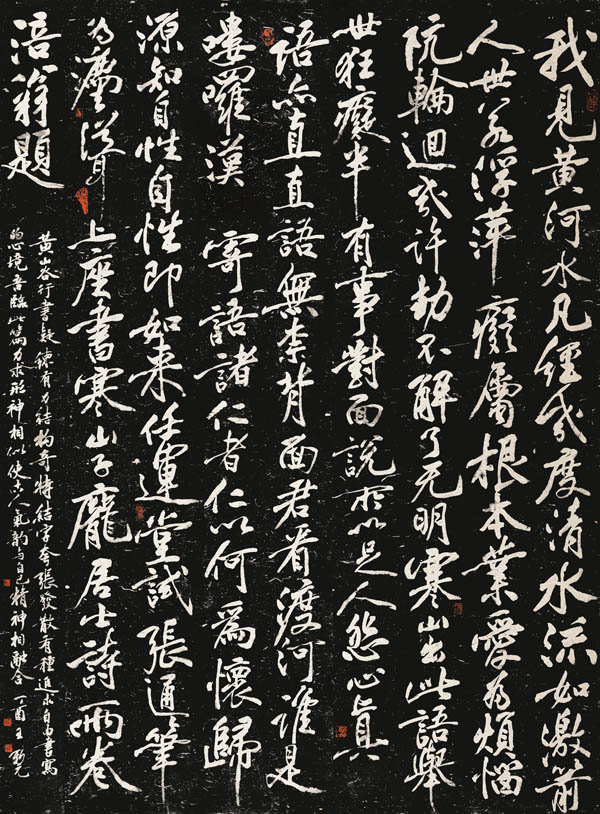 我見黃河水凡經幾度清水流如激箭
人世若浮萍癡屬根本業愛為煩惱
阬輪迴幾許劫不解了无明寒山出此語舉
世狂癡半有事對面說所以足人怨心真
語亦直直語無柰背面君看渡河誰是
嘍囉漢寄語諸仁者仁以何為懷歸
源知自性自性即如来任運堂試張通筆
為灋聳上座書寒山子龐居士詩兩卷
涪翁題
黃山谷行書凝鍊有力結構奇特結字夸張發散有種追求自由書寫
的心境吾臨此篇力求形神相似使古人氣韵与自己精神相融合丁酉王